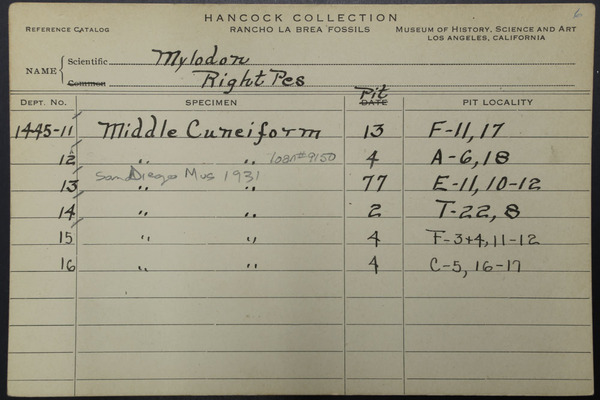 6
HANCOCK COLLECTION
REFERENCE CATALOG RANCHO LA BREA FOSSILS MUSEUM OF HISTORY, SCIENCE AND ART
LOS ANGELES, CALIFORNIA
NAME Scientific Mylodon
Common Right Pes
DEPT. NO. SPECIMEN Pit DATE PIT LOCALITY
1445-11 Middle Cuneiform 13 F-11, 17
12 " " Loan #9150 4 A-6, 18
13 San Diego Mus 1931 " " 77 E-11, 10-12
14 " " 2 T-22, 8
15 " " 4 F-3+4, 11-12
16 " " 4 C-5, 16-17